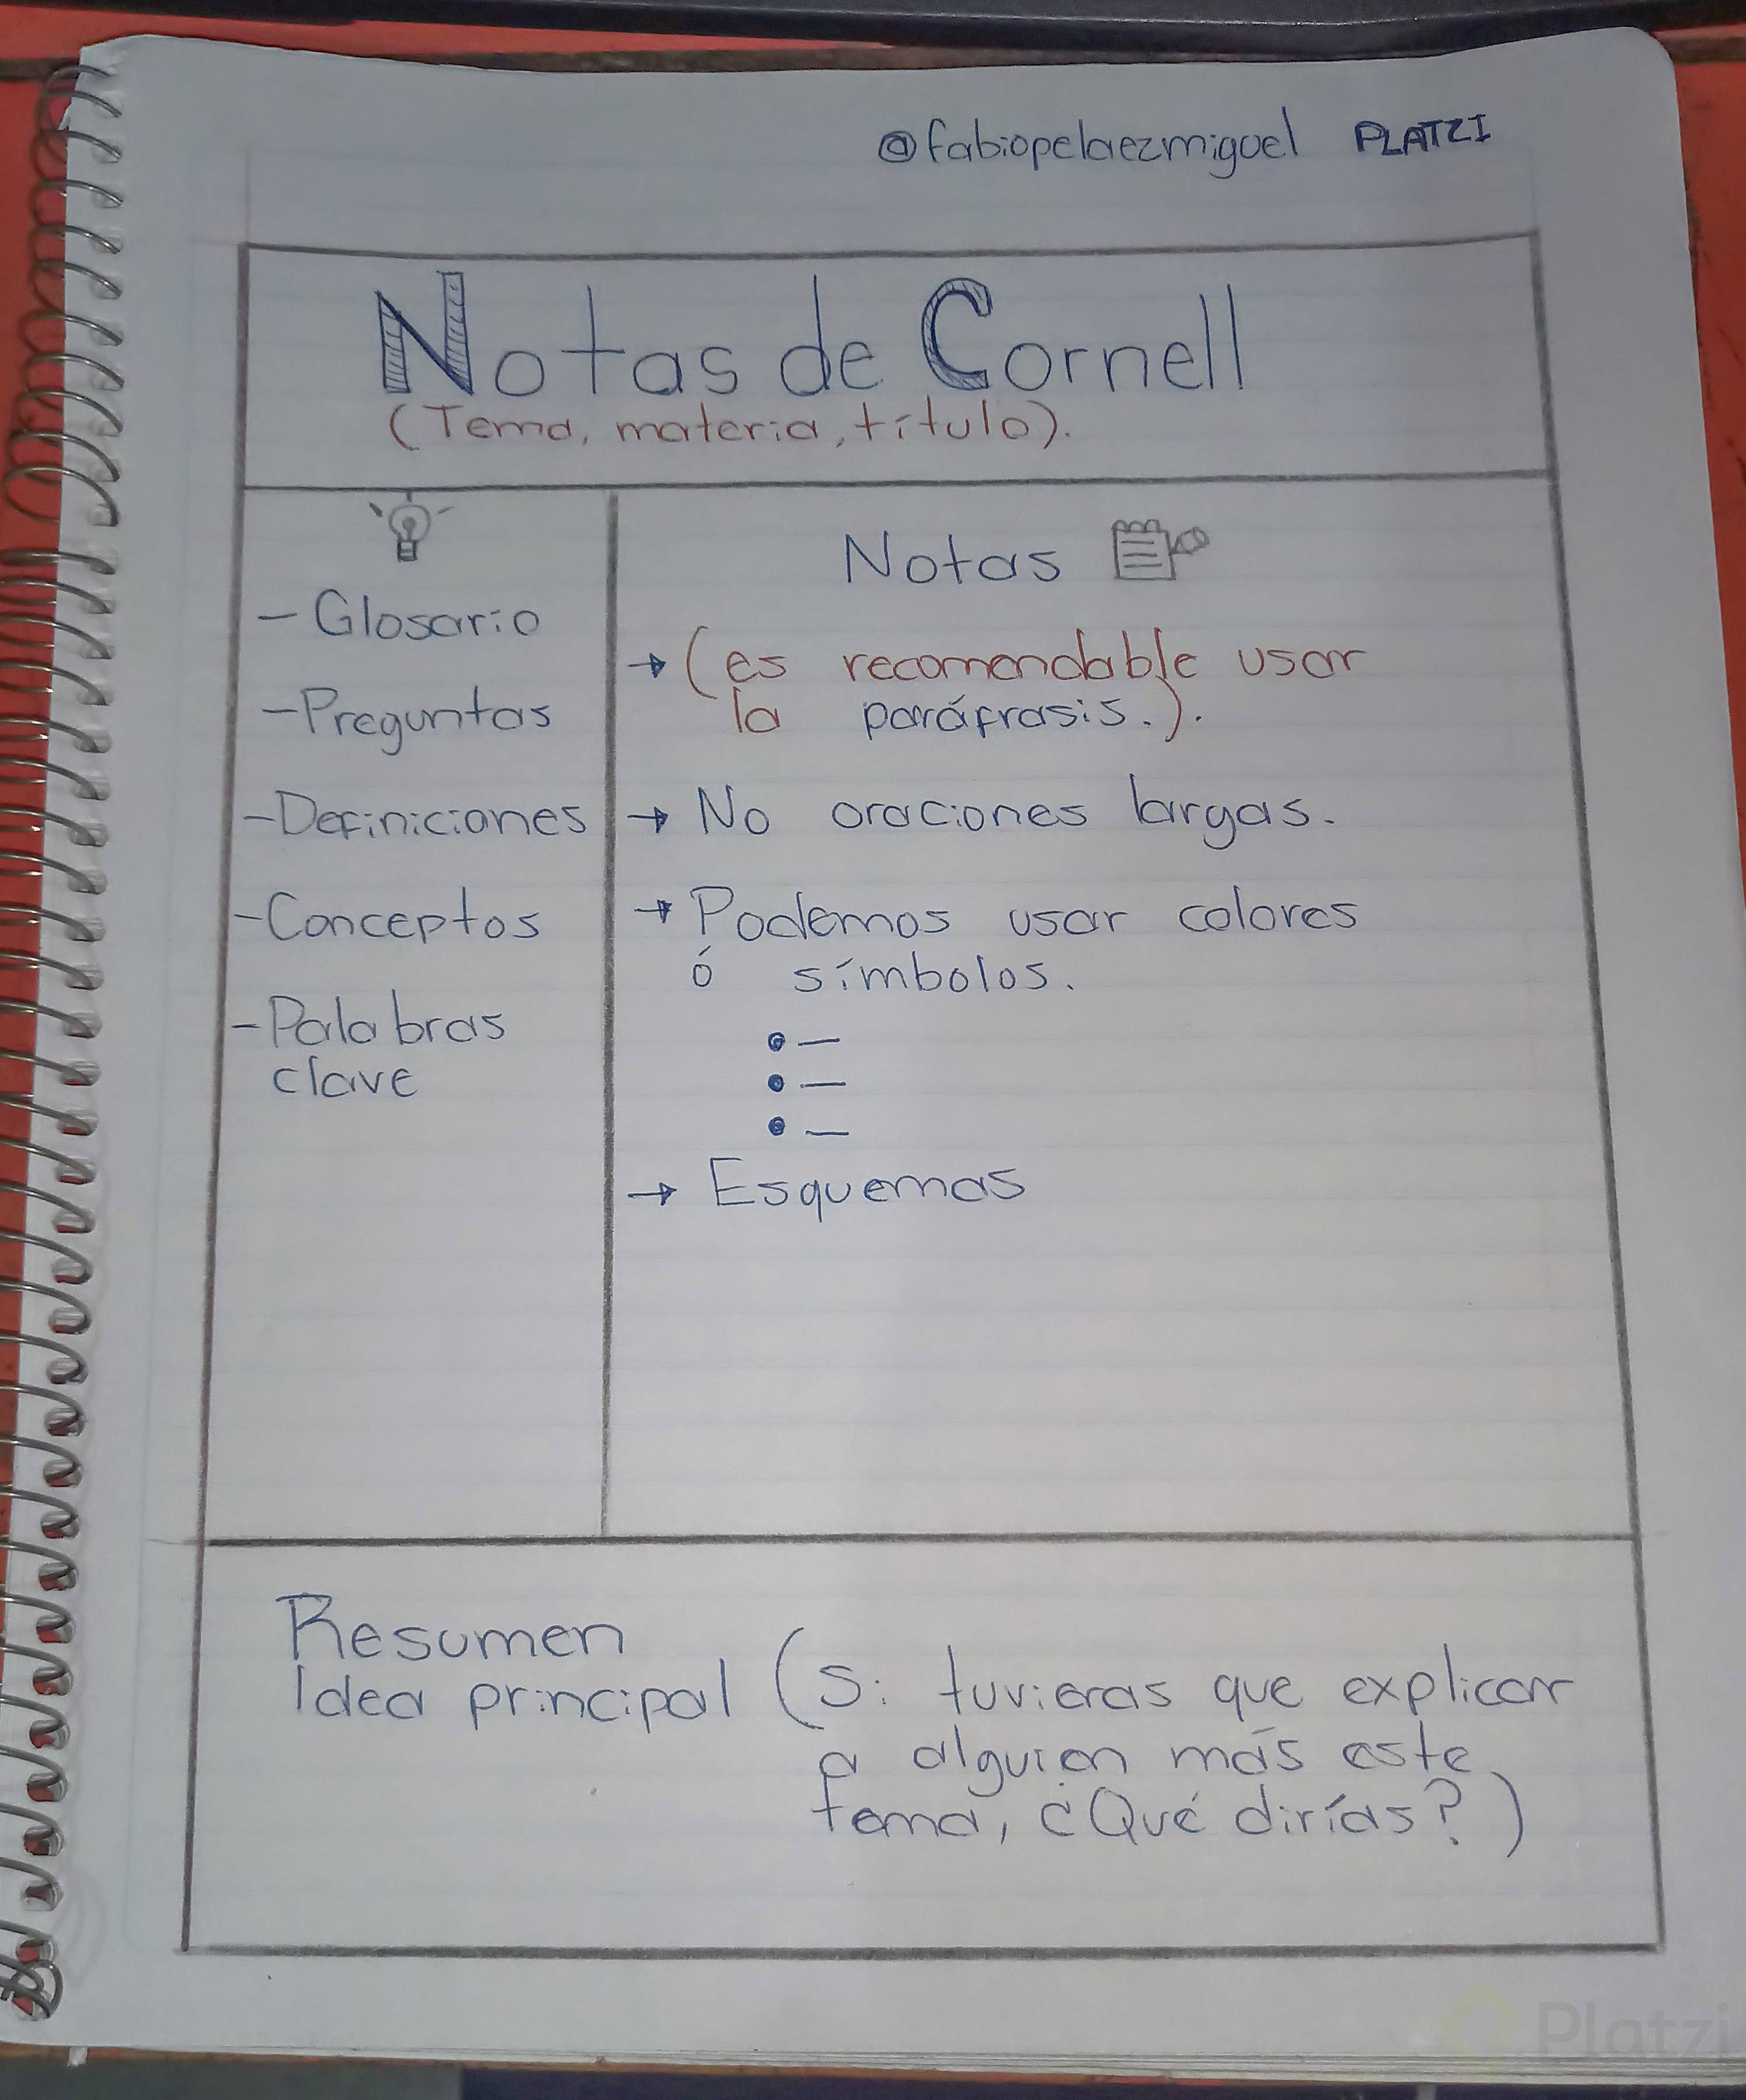 @fabiopelaezmiguel PLATZI
Notas de Cornell
(Tema, materia, título).
- Glosario
- Preguntas
- Definiciones
- Conceptos
- Palabras
clave
Notas
→ (es recomendable usar
la paráfrasis.).
→ No oraciones largas.
→ Podemos usar colores
ó símbolos.
• —
• —
• —
→ Esquemas
Resumen
Idea principal (Si tuvieras que explicar
a alguien más este
tema, ¿Qué dirías?)
Platzi